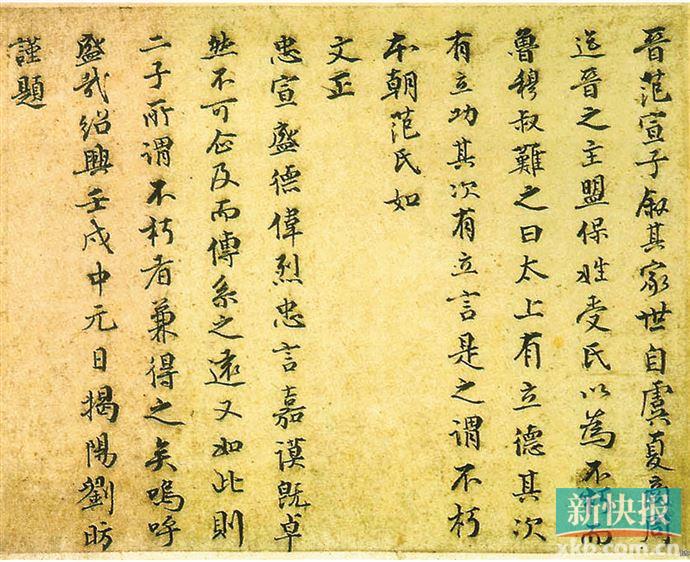 晉范宣子叙其家世自虞夏商周
迄晉之主盟保姓受氏以為不朽而
魯穆叔難之曰太上有立德其次
有立功其次有立言是之謂不朽
本朝范氏如
文正
忠宣盛德偉烈忠言嘉謨既卓
然不可企及而傳系之遠又如此則
二子所謂不朽者兼得之矣嗚呼
盛哉紹興壬戌中元日揭陽劉昉
謹題
新快报
xkb.com.cn